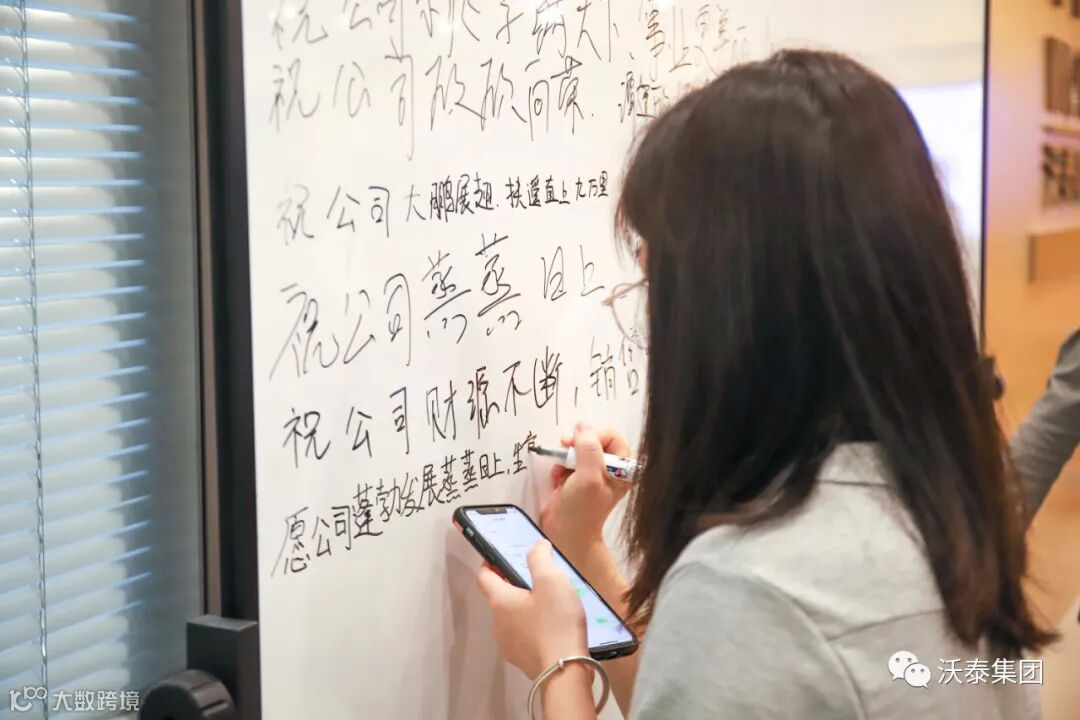 祝公司桃李满天下、事业更
祝公司欣欣向荣.
祝公司大鹏展翅.扶遥直上九万里
祝公司蒸蒸日上
祝公司财源不断,销售
愿公司蓬勃发展蒸蒸日上.生意
沃泰集团
10100 大数跨境